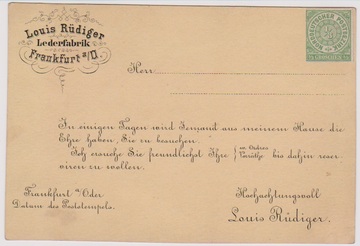 Louis Rüdiger
Lederfabrik
Frankfurt a/O.
NORDDEUTSCHER POSTBEZIRK
Herr
In einigen Tagen wird Jemand aus meinem Hause die
Ehre haben, Sie zu besuchen.
Ich ersuche Sie freundlichst Ihre w. Ordres bis dahin reser
viren zu wollen.
Frankfurt a/Oder
Datum des Poststempels.
Hochachtungsvoll
Louis Rüdiger.